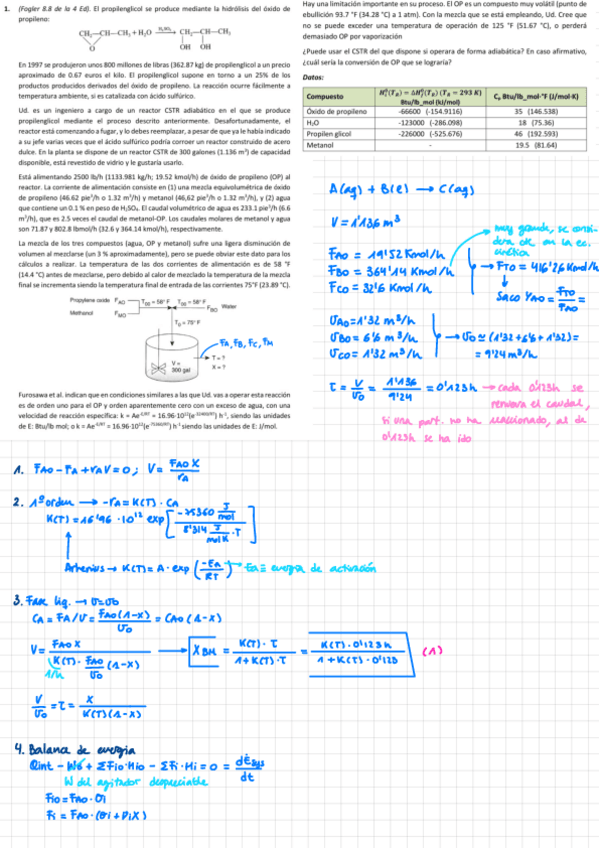 1. (Fogler 8.8 de la 4 Ed). El propilenglicol se produce mediante la hidrólisis del óxido de
propileno:
CH₂—CH—CH₃ + H₂O —H₂SO₄→ CH₂—CH—CH₃
O OH OH
En 1997 se produjeron unos 800 millones de libras (362.87 kg) de propilenglicol a un precio
aproximado de 0.67 euros el kilo. El propilenglicol supone en torno a un 25% de los
productos producidos derivados del óxido de propileno. La reacción ocurre fácilmente a
temperatura ambiente, si es catalizada con ácido sulfúrico.
Ud. es un ingeniero a cargo de un reactor CSTR adiabático en el que se produce
propilenglicol mediante el proceso descrito anteriormente. Desafortunadamente, el
reactor está comenzando a fugar, y lo debes reemplazar, a pesar de que ya le había indicado
a su jefe varias veces que el ácido sulfúrico podría corroer un reactor construido de acero
dulce. En la planta se dispone de un reactor CSTR de 300 galones (1.136 m³) de capacidad
disponible, está revestido de vidrio y le gustaría usarlo.
Está alimentando 2500 lb/h (1133.981 kg/h; 19.52 kmol/h) de óxido de propileno (OP) al
reactor. La corriente de alimentación consiste en (1) una mezcla equivolumétrica de óxido
de propileno (46.62 pie³/h o 1.32 m³/h) y metanol (46,62 pie³/h o 1.32 m³/h), y (2) agua
que contiene un 0.1 % en peso de H₂SO₄. El caudal volumétrico de agua es 233.1 pie³/h (6.6
m³/h), que es 2.5 veces el caudal de metanol-OP. Los caudales molares de metanol y agua
son 71.87 y 802.8 lbmol/h (32.6 y 364.14 kmol/h), respectivamente.
La mezcla de los tres compuestos (agua, OP y metanol) sufre una ligera disminución de
volumen al mezclarse (un 3 % aproximadamente), pero se puede obviar este dato para los
cálculos a realizar. La temperatura de las dos corrientes de alimentación es de 58 °F
(14.4 °C) antes de mezclarse, pero debido al calor de mezclado la temperatura de la mezcla
final se incrementa siendo la temperatura final de entrada de las corrientes 75°F (23.89 °C).
Propylene oxide F_AO T₀₀ = 58° F T₀₀ = 58° F Water
Methanol F_MO F_BO
T₀ = 75° F
FA, FB, FC, FM
V =
300 gal
T = ?
X = ?
Furosawa et al. indican que en condiciones similares a las que Ud. vas a operar esta reacción
es de orden uno para el OP y orden aparentemente cero con un exceso de agua, con una
velocidad de reacción específica: k = Ae^-E/RT = 16.96·10¹²(e^-32400/RT) h⁻¹, siendo las unidades
de E: Btu/lb mol; o k = Ae^-E/RT = 16.96·10¹²(e^-75360/RT) h⁻¹ siendo las unidades de E: J/mol.
Hay una limitación importante en su proceso. El OP es un compuesto muy volátil (punto de
ebullición 93.7 °F (34.28 °C) a 1 atm). Con la mezcla que se está empleando, Ud. Cree que
no se puede exceder una temperatura de operación de 125 °F (51.67 °C), o perderá
demasiado OP por vaporización
¿Puede usar el CSTR del que dispone si operara de forma adiabática? En caso afirmativo,
¿cuál sería la conversión de OP que se lograría?
Datos:
Compuesto H°ᵢ(T_R) = ΔH°f(T_R) (T_R = 293 K) Btu/lb_mol (kJ/mol) Cₚ Btu/lb_mol·°F (J/mol·K)
Óxido de propileno -66600 (-154.9116) 35 (146.538)
H₂O -123000 (-286.098) 18 (75.36)
Propilen glicol -226000 (-525.676) 46 (192.593)
Metanol - 19.5 (81.64)
A(aq) + B(l) → C(aq)
V = 1'136 m³
FAO = 19'52 Kmol/h
FBO = 364'14 Kmol/h
FCO = 32'6 Kmol/h
muy grande, se consi
dera cte en la ec.
cinética
→ FTO = 416'26 Kmol/h
Saco YAO = FTO/FTO =
UAO = 1'32 m³/h
UBO = 6'6 m³/h
UCO = 1'32 m³/h
→ U0 ≃ (1'32 + 6'6 + 1'32) =
= 9'24 m³/h
τ = V/U0 = 1'136/9'24 = 0'123h → cada 0'123h se
renueva el caudal,
si una part. no ha reaccionado, al de
0'123h se ha ido
1. FAO - FA + rAV = 0 ; V = FAO X / rA
2. 1º orden → -rA = K(T) · CA
K(T) = 16'96 · 10¹² exp[ -75360 J/mol / 8'314 J/mol K · T ]
Arhenius → K(T) = A · exp(-Ea/RT) → Ea ≡ energia de activación
3. Fase liq. → U = U0
CA = FA/U = FAO(1-X)/U0 = CAO(1-X)
V = FAO X / K(T) · FAO/U0 (1-X) → XBM = K(T) · τ / 1 + K(T) · τ = K(T) · 0'123h / 1 + K(T) · 0'123 (1)
1/h
V/U0 = τ = X / K(T)(1-X)
4. Balana de energia
Qint - Ws + ΣFio·Hio - ΣFi·Hi = 0 = dEsys/dt
W del agitador despreciable
Fio = FAO · Θi
Fi = FAO · (Θi + νi X)